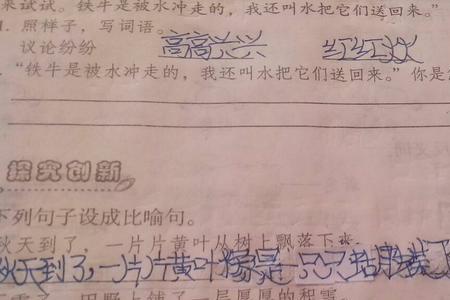 来试试。铁牛是被水冲走的，我还叫水把它们送回来。”
1. 照样子，写词语。
议论纷纷 高高兴兴 红红火火
“铁牛是被水冲走的，我还叫水把它们送回来。”你是
探究创新
下列句子设成比喻句。
秋天到了，一片片黄叶从树上飘落下来
秋天到了，一片片黄叶像是一只只蝴蝶
田野上铺了一层厚厚的积雪